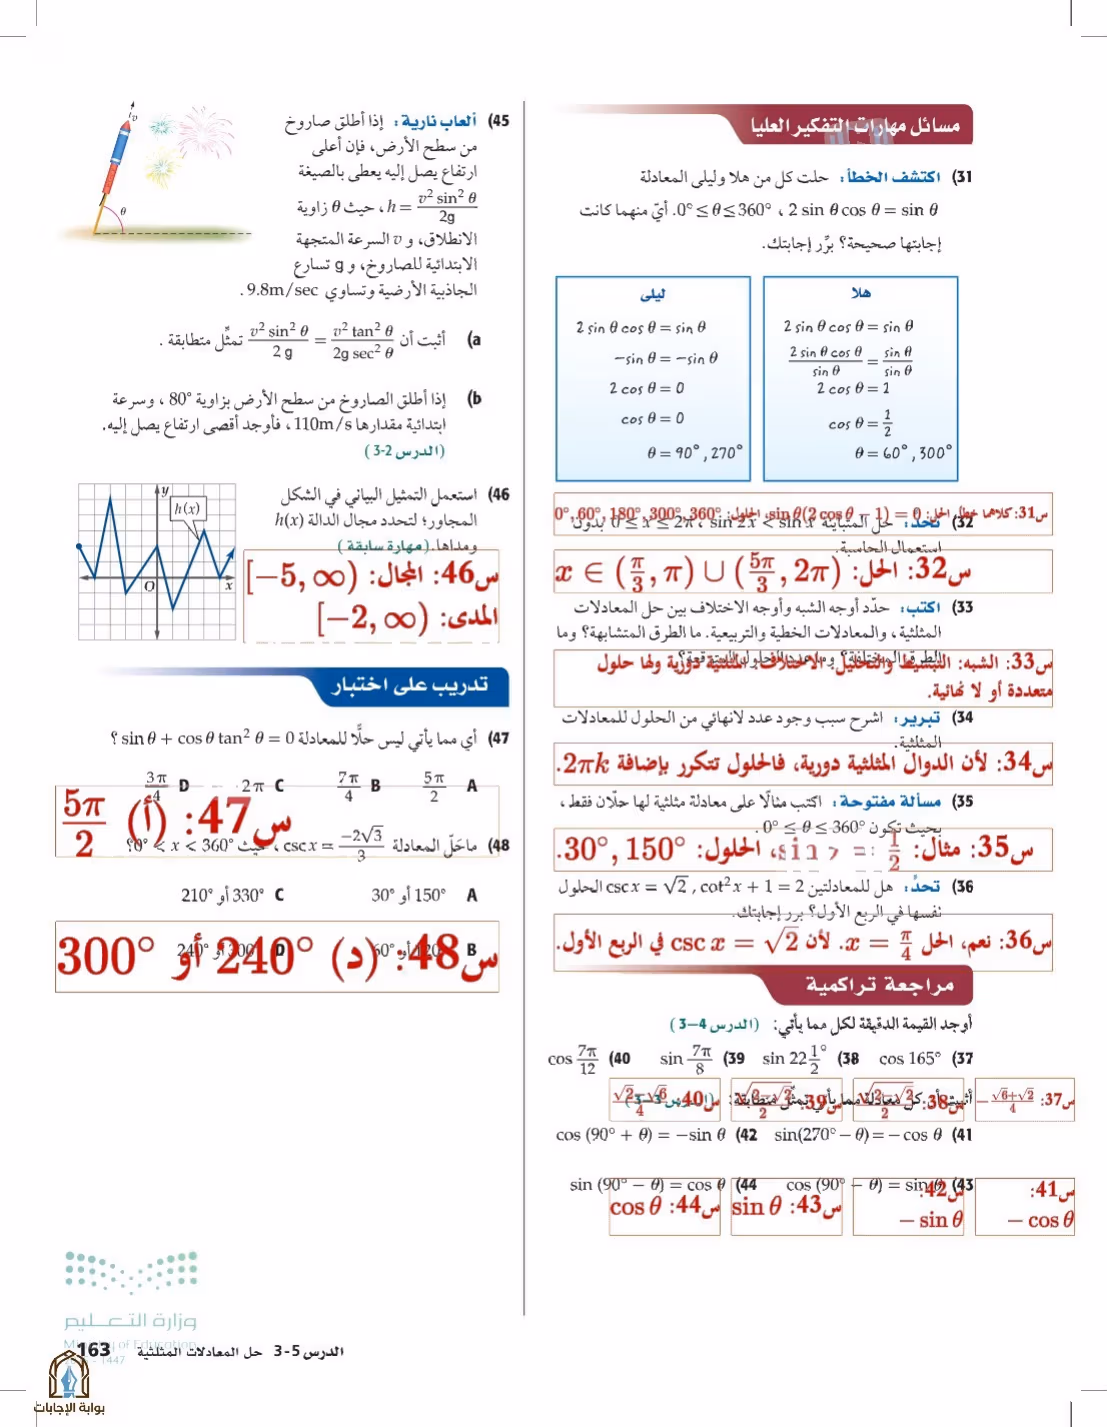 مسائل مهارات التفكير العليا
31) اكتشف الخطأ: حلت كل من هلا وليلى المعادلة
2 sin θ cos θ = sin θ ، 0° ≤ θ ≤ 360°. أيّ منهما كانت
إجابتها صحيحة؟ برِّر إجابتك.
هلا
2 sin θ cos θ = sin θ
2 sin θ cos θ / sin θ = sin θ / sin θ
2 cos θ = 1
cos θ = 1/2
θ = 60°, 300°
ليلى
2 sin θ cos θ = sin θ
−sin θ = −sin θ
2 cos θ = 0
cos θ = 0
θ = 90°, 270°
س31: كلاهما خطأ. الحل: sin θ(2 cos θ − 1) = 0، الحلول: 0°, 60°, 180°, 300°, 360°
32) تحدٍّ: حل المتباينة sin 2x < sin x ، 0 ≤ x ≤ 2π بدون
استعمال الحاسبة.
س32: الحل: x ∈ (π/3, π) ∪ (5π/3, 2π)
33) اكتب: حدّد أوجه الشبه وأوجه الاختلاف بين حل المعادلات
المثلثية، والمعادلات الخطية والتربيعية. ما الطرق المتشابهة؟ وما
الطرق المختلفة؟ وما عدد الحلول المتوقعة؟
س33: الشبه: التبسيط والتحليل. الاختلاف: المثلثية دورية ولها حلول
متعددة أو لا نهائية.
34) تبرير: اشرح سبب وجود عدد لانهائي من الحلول للمعادلات
المثلثية.
س34: لأن الدوال المثلثية دورية، فالحلول تتكرر بإضافة 2πk.
35) مسألة مفتوحة: اكتب مثالًا على معادلة مثلثية لها حلّان فقط،
بحيث تكون 0° ≤ θ ≤ 360°.
س35: مثال: = 1/2، الحلول: 30°, 150°.
36) تحدٍّ: هل للمعادلتين csc x = √2 , cot² x + 1 = 2 الحلول
نفسها في الربع الأول؟ برر إجابتك.
س36: نعم، الحل x = π/4. لأن csc x = √2 في الربع الأول.
مراجعة تراكمية
أوجد القيمة الدقيقة لكل مما يأتي: (الدرس 4-3)
37) cos 165° 38) sin 22 1/2° 39) sin 7π/8 40) cos 7π/12
أثبت أن كل معادلة مما يأتي تمثّل متطابقة: (الدرس 3-3)
س37: −(√6+√2)/4 س38: √(2−√2)/2 س39: √(2−√2)/2 س40: (√2−√6)/4
41) sin(270° − θ) = − cos θ 42) cos (90° + θ) = −sin θ
43) cos (90° − θ) = sin θ 44) sin (90° − θ) = cos θ
س41: − cos θ س42: − sin θ س43: sin θ س44: cos θ
45) ألعاب نارية: إذا أطلق صاروخ
من سطح الأرض، فإن أعلى
ارتفاع يصل إليه يعطى بالصيغة
h = v² sin² θ / 2g، حيث θ زاوية
الانطلاق، و v السرعة المتجهة
الابتدائية للصاروخ، و g تسارع
الجاذبية الأرضية وتساوي 9.8m/sec.
v
θ
a) أثبت أن v² sin² θ / 2 g = v² tan² θ / 2g sec² θ تمثِّل متطابقة.
b) إذا أطلق الصاروخ من سطح الأرض بزاوية 80°، وسرعة
ابتدائية مقدارها 110m/s، فأوجد أقصى ارتفاع يصل إليه.
(الدرس 2-3)
46) استعمل التمثيل البياني في الشكل
المجاور؛ لتحدد مجال الدالة h(x)
ومداها. (مهارة سابقة)
y
h(x)
O
x
س46: المجال: [−5, ∞)
المدى: [−2, ∞)
تدريب على اختبار
47) أي مما يأتي ليس حلًّا للمعادلة sin θ + cos θ tan² θ = 0 ؟
A 5π/2 B 7π/4 C 2π D 3π/4
س47: (أ) 5π/2
48) ماحَلّ المعادلة csc x = −2√3/3 ، حيث 0° < x < 360°؟
A 30° أو 150° C 210° أو 330°
B 60° أو 120° D 240° أو 300°
س48: (د) 240° أو 300°
وزارة التعليم
Ministry of Education
1447
الدرس 5-3 حل المعادلات المثلثية 163
بوابة الإجابات